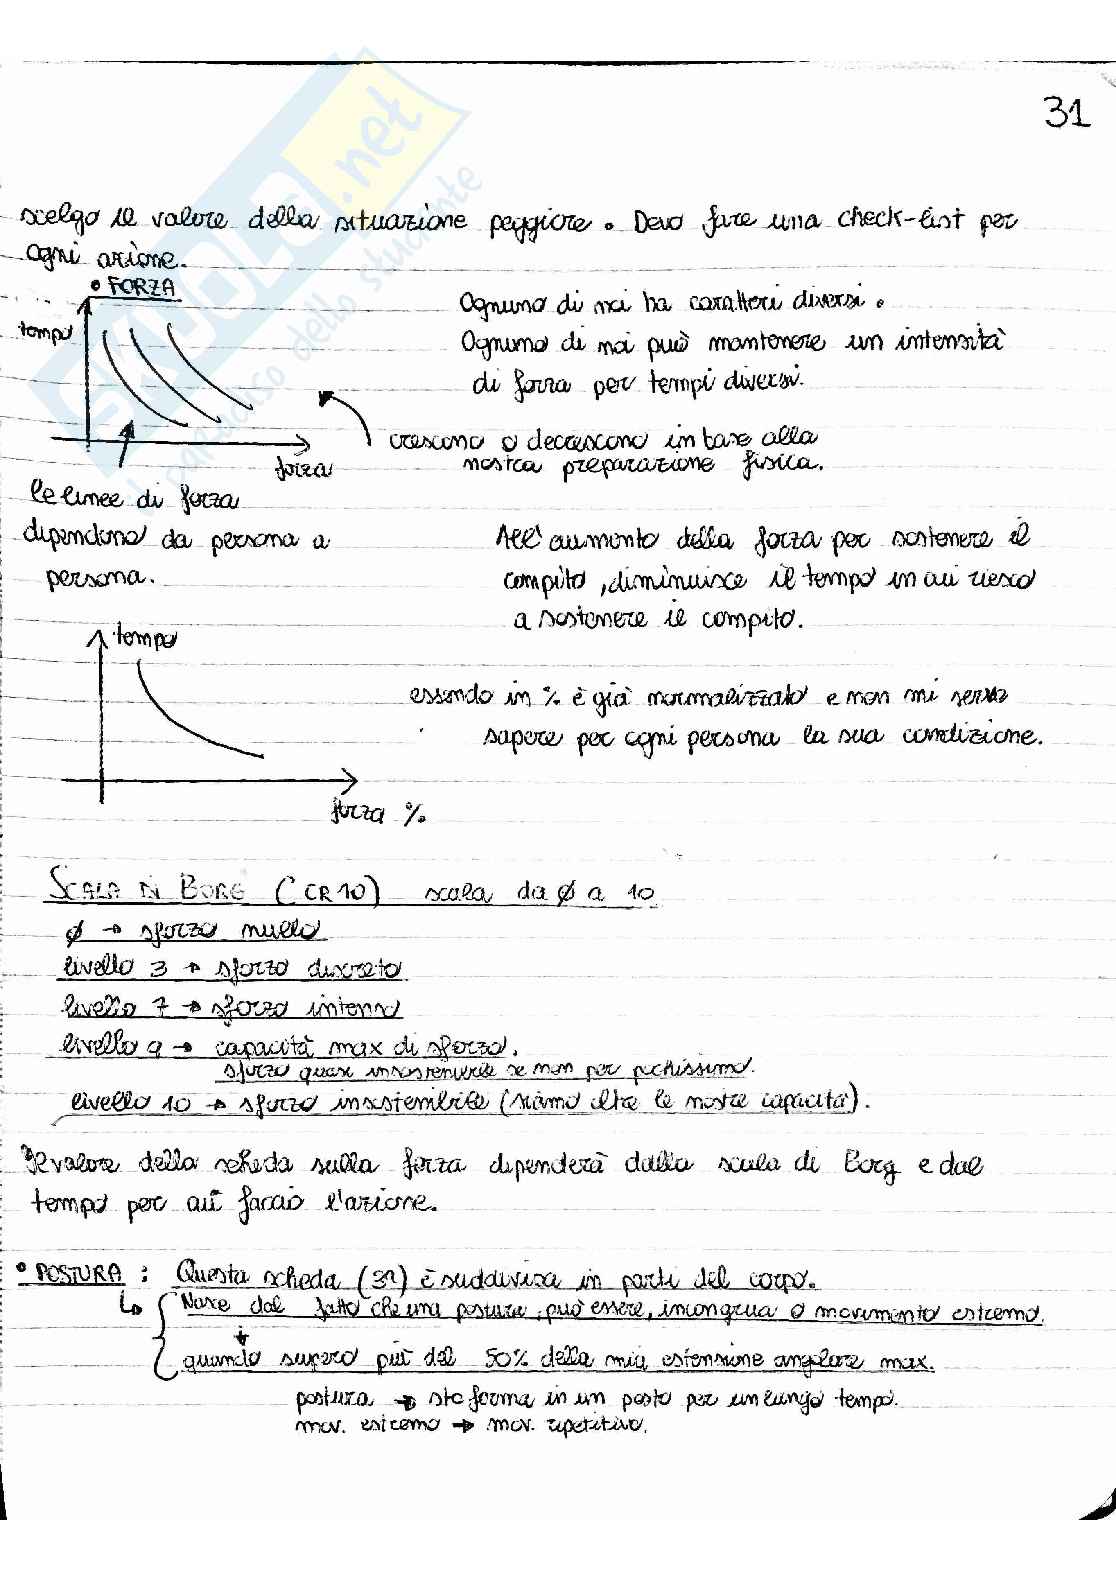 31
scelgo il valore della situazione peggiore. Devo fare una check-list per
ogni azione.
• FORZA
tempo
forza
Ognuno di noi ha caratteri diversi.
Ognuno di noi può mantenere un intensità
di forza per tempi diversi.
crescono o decrescono in base alla
nostra preparazione fisica.
le linee di forza
dipendono da persona a
persona.
All'aumento della forza per sostenere il
compito, diminuisce il tempo in cui riesco
a sostenere il compito.
tempo
forza %
essendo in % è già normalizzato e non mi serve
sapere per ogni persona la sua condizione.
SCALA DI BORG (CR10) scala da ø a 10
ø → sforzo nullo
livello 3 → sforzo discreto
livello 7 → sforzo intenso
livello 9 → capacità max di sforzo.
sforzo quasi insostenibile se non per pochissimo.
livello 10 → sforzo insostenibile (siamo oltre le nostre capacità).
Il valore della scheda sulla forza dipenderà dalla scala di Borg e dal
tempo per cui faccio l'azione.
• POSTURA : Questa scheda (32) è suddivisa in parti del corpo.
Nasce dal fatto che una postura può essere incongrua o movimento estremo.
quando supero più del 50% della mia estensione angolare max.
postura → sto ferma in un posto per un lungo tempo.
mov. estremo → mov. ripetitivo.
SKUOLA.net
il paradiso dello studente